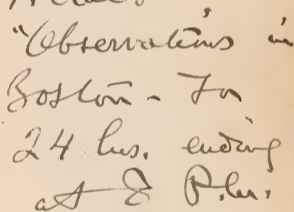 "Observations in
Boston - For
24 hrs. ending
at 8 P.M.